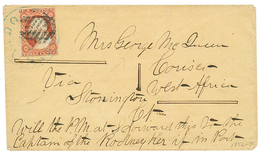 Mrs George McQueen
Via
West Africa
Stonington
Ct
Will the P.M. at S forward this to the
Captain of the Rodney her if in Port